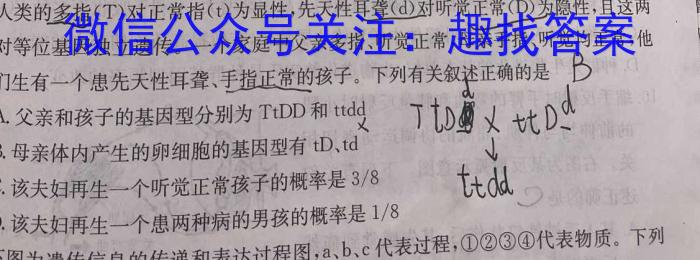 人类的多指(T)对正常指(t)为显性,先天性耳聋(d)对听觉正常(D)为隐性,且这两
微信公众号关注：趣找答案
对等位基因独立遗传 家庭中父亲多指、听觉正常 他
们生有一个患先天性耳聋、手指正常的孩子。下列有关叙述正确的是 B
A. 父亲和孩子的基因型分别为 TtDD 和 ttdd ×
TtDd × ttDd
B. 母亲体内产生的卵细胞的基因型有 tD、td
↓
ttdd
C. 该夫妇再生一个听觉正常孩子的概率是 3/8
D. 该夫妇再生一个患两种病的男孩的概率是 1/8
下图为遗传信息的传递和表达过程图,a、b、c 代表过程,①②③④代表物质。下列